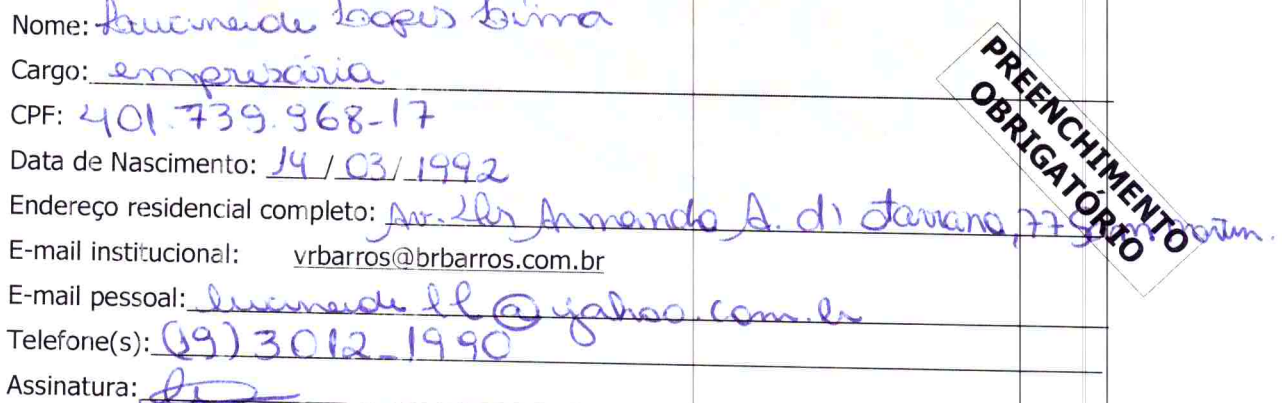 Nome: Lucineide Lopes Lima
Cargo: empresária
CPF: 401.739.968-17
Data de Nascimento: 14 / 03 / 1992
Endereço residencial completo: Av. Armando A. di 77
E-mail institucional: vrbarros@brbarros.com.br
E-mail pessoal: lucineide ll @ yahoo.com.br
Telefone(s): (19) 3012-1990
Assinatura:
PREENCHIMENTO
OBRIGATÓRIO